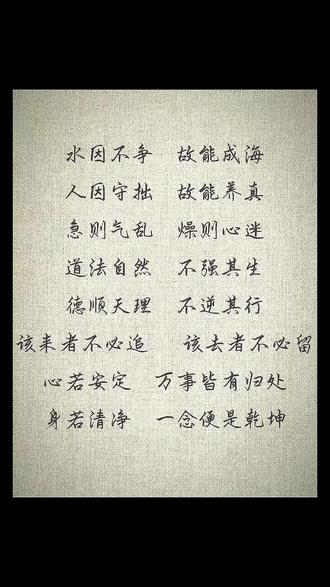 水因不争 故能成海
人因守拙 故能养真
急则气乱 燥则心迷
道法自然 不强其生
德顺天理 不逆其行
该来者不必追 该去者不必留
心若安定 万事皆有归处
身若清净 一念便是乾坤